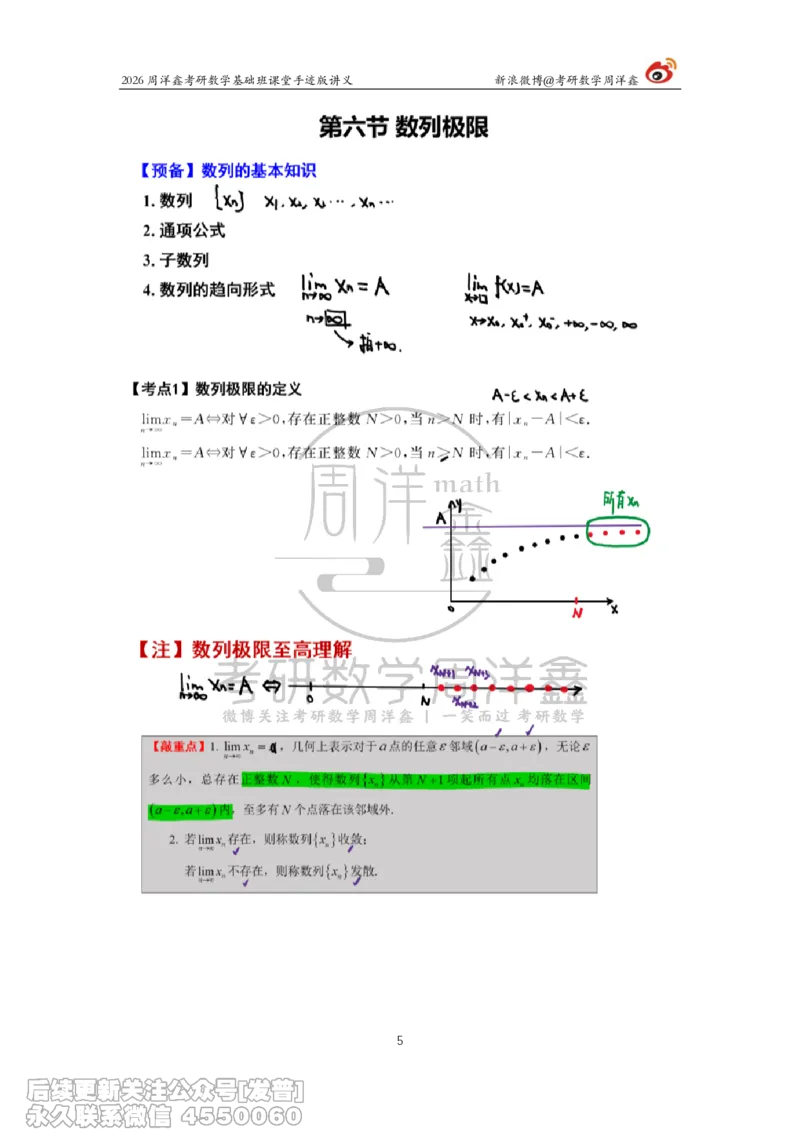 2026 周洋鑫考研数学基础班课堂手迹版讲义 新浪微博@考研数学周洋鑫
第六节 数列极限
【预备】数列的基本知识
1. 数列 {xn} x1, x2, x3 ···, xn ···
2. 通项公式
3. 子数列
4. 数列的趋向形式 lim n→∞ xn = A lim x→□ f(x)=A
n→∞ x→x0, x0⁺, x0⁻, +∞, -∞, ∞
指+∞.
【考点1】数列极限的定义 A-ε<xn<A+ε
lim n→∞ xn = A⇔对∀ε>0,存在正整数 N>0,当 n>N 时,有|xn-A|<ε.
lim n→∞ xn = A⇔对∀ε>0,存在正整数 N>0,当 n≥N 时,有|xn-A|<ε.
周洋鑫 math
所有xn
y
A
0 N x
【注】数列极限至高理解
考研数学周洋鑫
xN+1 xN+3
lim n→∞ xn=A ⇔ 0 N xN+2
微博关注考研数学周洋鑫 | 一笑而过 考研数学
【敲重点】1. lim n→∞ xn = a，几何上表示对于a点的任意ε邻域(a-ε,a+ε)，无论ε
多么小，总存在正整数N，使得数列{xn}从第N+1项起所有点xn均落在区间
(a-ε,a+ε)内，至多有N个点落在该邻域外.
2. 若lim n→∞ xn存在，则称数列{xn}收敛；
若lim n→∞ xn不存在，则称数列{xn}发散.
5
后续更新关注公众号[发普]
永久联系微信 4550060